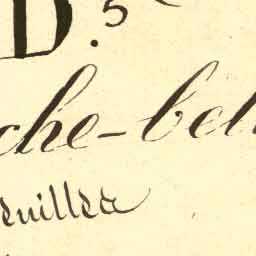 D. 5
che-bel
euilles